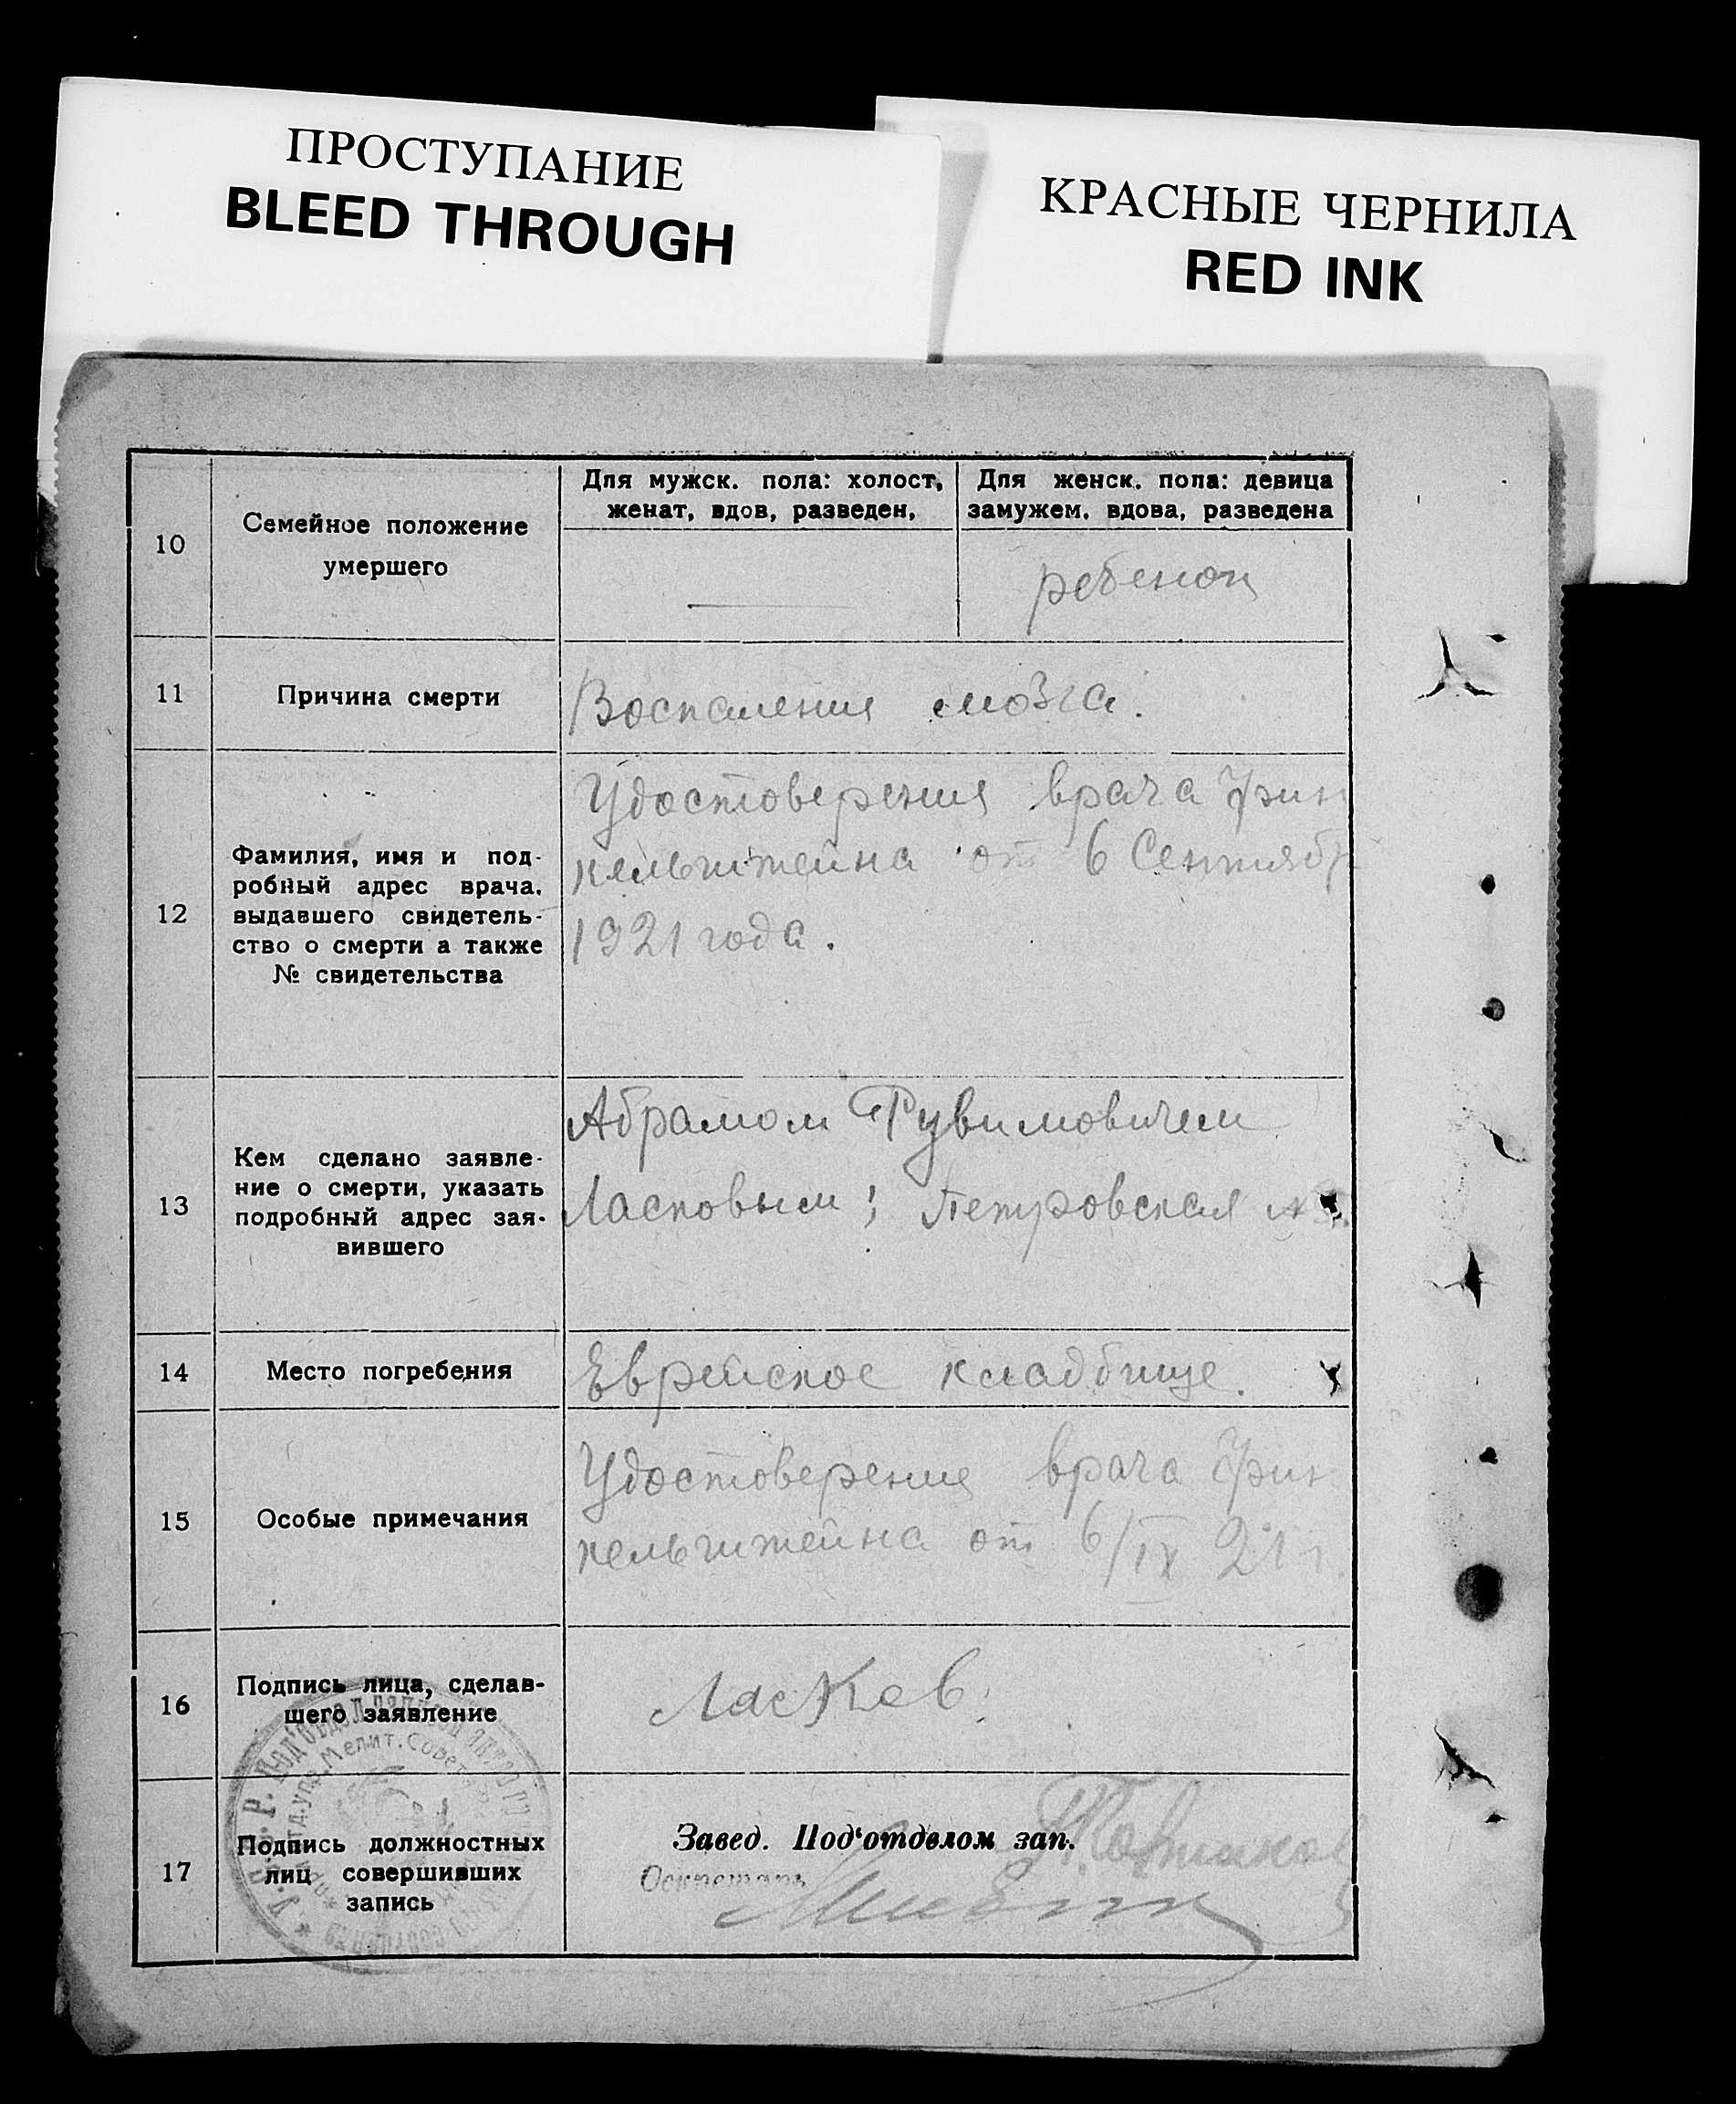 ПРОСТУПАНИЕ
BLEED THROUGH
КРАСНЫЕ ЧЕРНИЛА
RED INK
10
Семейное положение
умершего
Для мужск. пола: холост,
женат, вдов, разведен,
Для женск. пола: девица
замужем, вдова, разведена
ребенок
11
Причина смерти
Воспаления мозга.
12
Фамилия, имя и под-
робный адрес врача,
выдавшего свидетель-
ство о смерти а также
№ свидетельства
Удостоверения врача Фин
кельштейна от 6 Сентябр
1921 года.
13
Кем сделано заявле-
ние о смерти, указать
подробный адрес зая-
вившего
Абрамом Рувимовичем
Ласковым; Петровская №
14
Место погребения
Еврейское кладбище.
15
Особые примечания
Удостоверения врача Фин
кельштейна от 6/IX 21 г.
16
Подпись лица, сделав-
шего заявление
Ласков.
17
Подпись должностных
лиц совершивших
запись
Завед. Под'отделом зап.
Секретарь